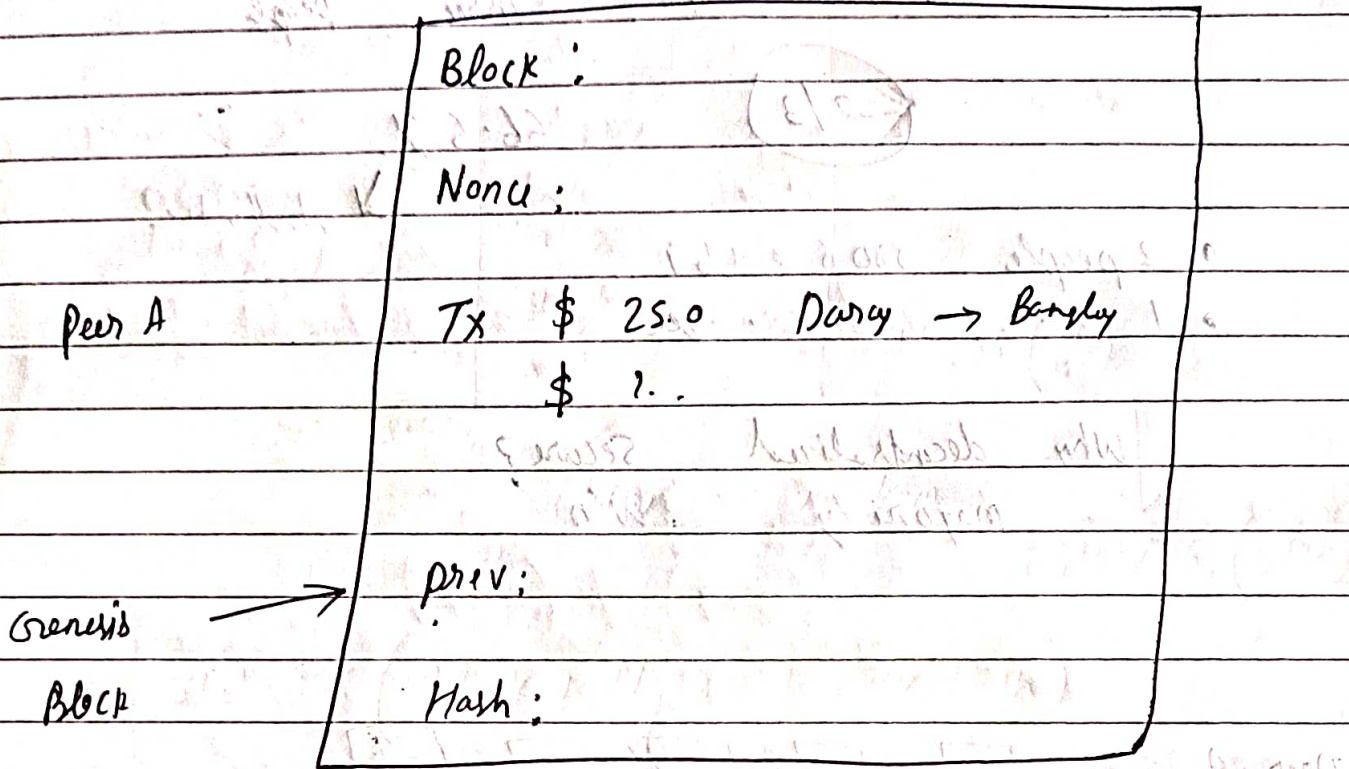 Block :
Nonce :
Peer A Tx $ 25.0 Darcy → Bangley
$ ?..
prev :
Genesis
Block Hash :